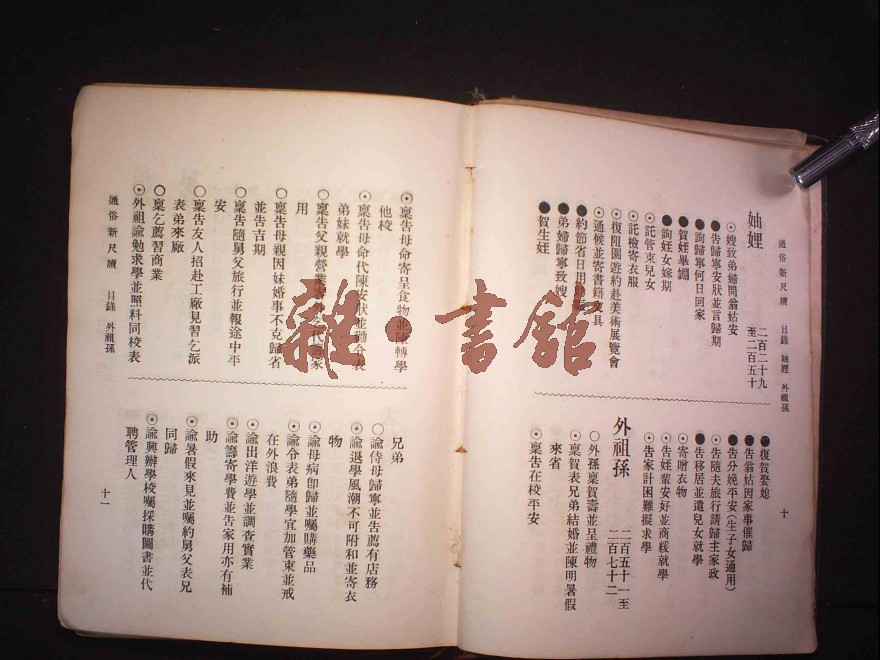 通俗新尺牘 目錄 妯娌 外祖孫 十
妯娌 二百二十九至二百五十
嫂致弟婦問翁姑安
告歸寧安狀並言歸期
詢歸寧何日回家
賀姪畢
詢姪女嫁期
託管束兒女
託檢寄衣服
復阻園遊約赴美術展覽會
通候並寄書籍文具
約節省日用
弟婦歸寧致嫂
賀生姪
復賀娶媳
告翁姑因家事催歸
告分娩平安(生子女通用)
告隨夫旅行請歸主家政
告移居並遣兒女就學
寄贈衣物
告姪輩安好並商緩就學
告家計困難擬求學
外祖孫 二百五十一至二百七十二
外孫稟賀壽並呈禮物
稟賀表兄弟結婚並陳明暑假
來省
稟告在校平安
稟告母命寄呈食物並陳轉學
他校
稟告母命代陳安狀並勸令表
弟妹就學
稟告父親營業
用
稟告母親因妹婚事不克歸省
並告吉期
稟告隨舅父旅行並報途中平
安
稟告友人招赴工廠見習乞派
表弟來廠
稟乞薦習商業
外祖諭勉求學並照料同校表
兄弟
諭侍母歸寧並告薦有店務
諭退學風潮不可附和並寄衣
物
諭母病即歸並囑購藥品
諭令表弟隨學宜加管束並戒
在外浪費
諭出洋遊學並調查實業
諭籌寄學費並告家用亦有補
助
諭暑假來見並囑約舅父表兄
同歸
諭興辦學校囑採購圖書並代
聘管理人
通俗新尺牘 目錄 外祖孫 十一
雜·書館